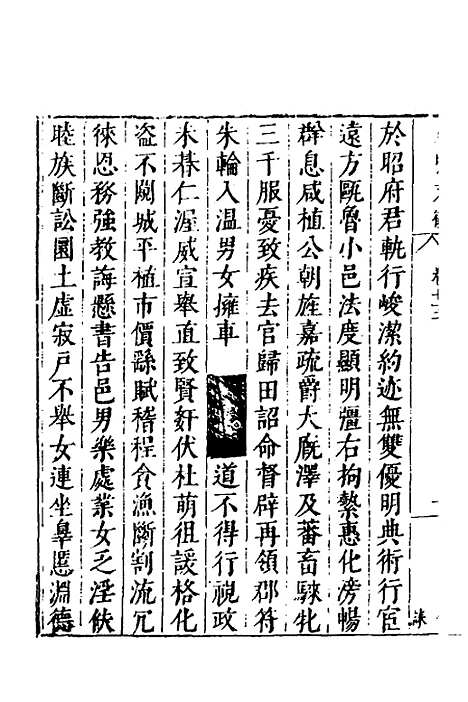 於昭府君執行峻潔約迹無雙優明典術行宦
遠方甌魯小邑法度顯明彊右拘繫惠化傍暢
群息咸植公朝旌嘉疏爵大厩澤及蕃畜騋牝
三千服憂致疾去官歸田詔命督辟再領郡符
朱輪入温男女擁車道不得行視政
未朞仁渥威宣舉直致賢奸伏杜萌徂諼格化
盗不闚城平植市價繇賦稽程食漁斷割流冗
徠恩務強教誨懸書告邑男樂處業女乏淫佚
睦族斷訟園土虚寂戸不舉女連坐辠慝淵德